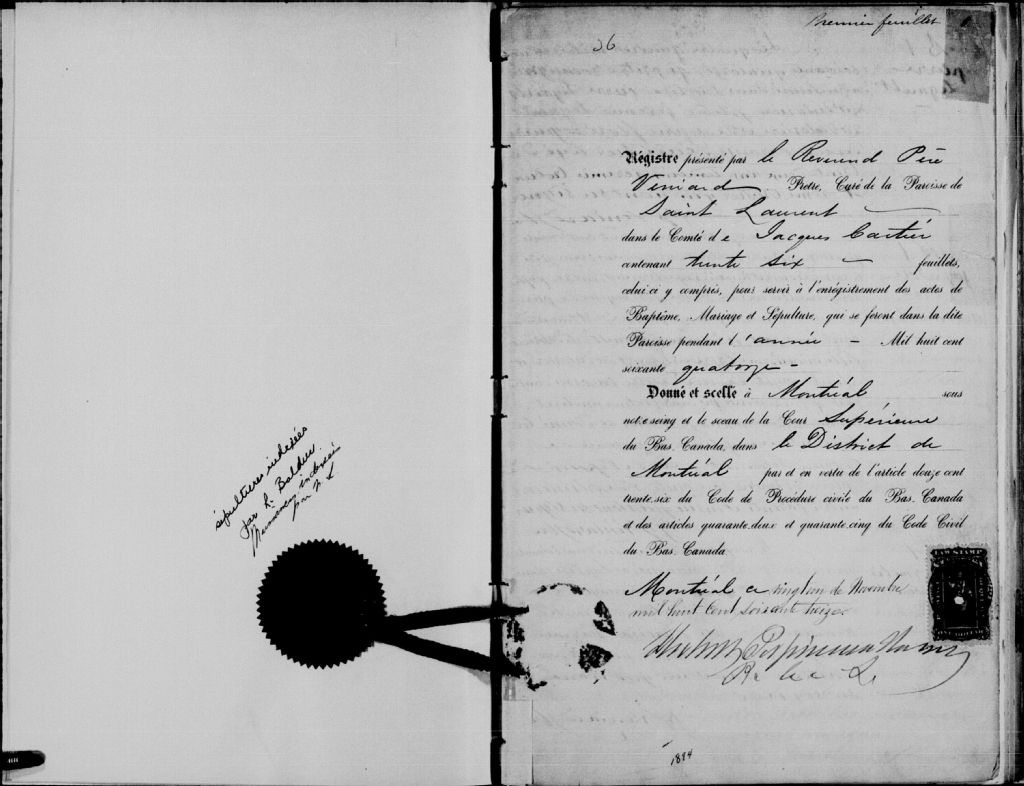 sépultures indexées
par L. Baldeu
par
Premier feuillet
36
Régistre présenté par le Reverend Père
Veniard Pretre, Curé de la Paroisse de
Saint Laurent
dans le Comté de Jacques Cartier
contenant trente six — feuillets,
celui ci y compris, pour servir à l'enrégistrement des actes de
Baptême, Mariage et Sépulture, qui se feront dans la dite
Paroisse pendant l'année — Mil huit cent
soixante quatorze -
Donné et scellé à Montréal sous
notre seing et le sceau de la Cour Supérieure
du Bas. Canada, dans le District de
Montréal par et en vertu de l'article douze cent
trente.six du Code de Procédure civile du Bas. Canada
et des articles quarante.deux et quarante.cinq du Code Civil
du Bas. Canada
Montréal ce vingt un de Novembre
mil huit cent soixante treize
LAW STAMP
1874